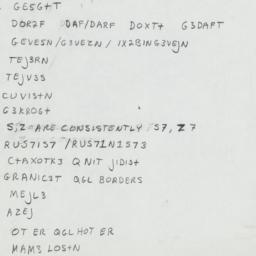 GE5G+T
DOR2F DAF/DARF DOXT+ G3DAFT
GEVE5N/G3VEZN/1X2BING3VEJN
TEJ3RN
TEJV3S
CUVI5+N
G3KROG+
S,Z ARE CONSISTENTLY S7, Z7
RUS7IS7/RUS7IN2S73
C+AXOTK3 QNIT JIDI5+
GRANIC2T QGL BORDERS
MEJL3
AZEJ
OT ER QGL HOT ER
MAM3 LOS+N